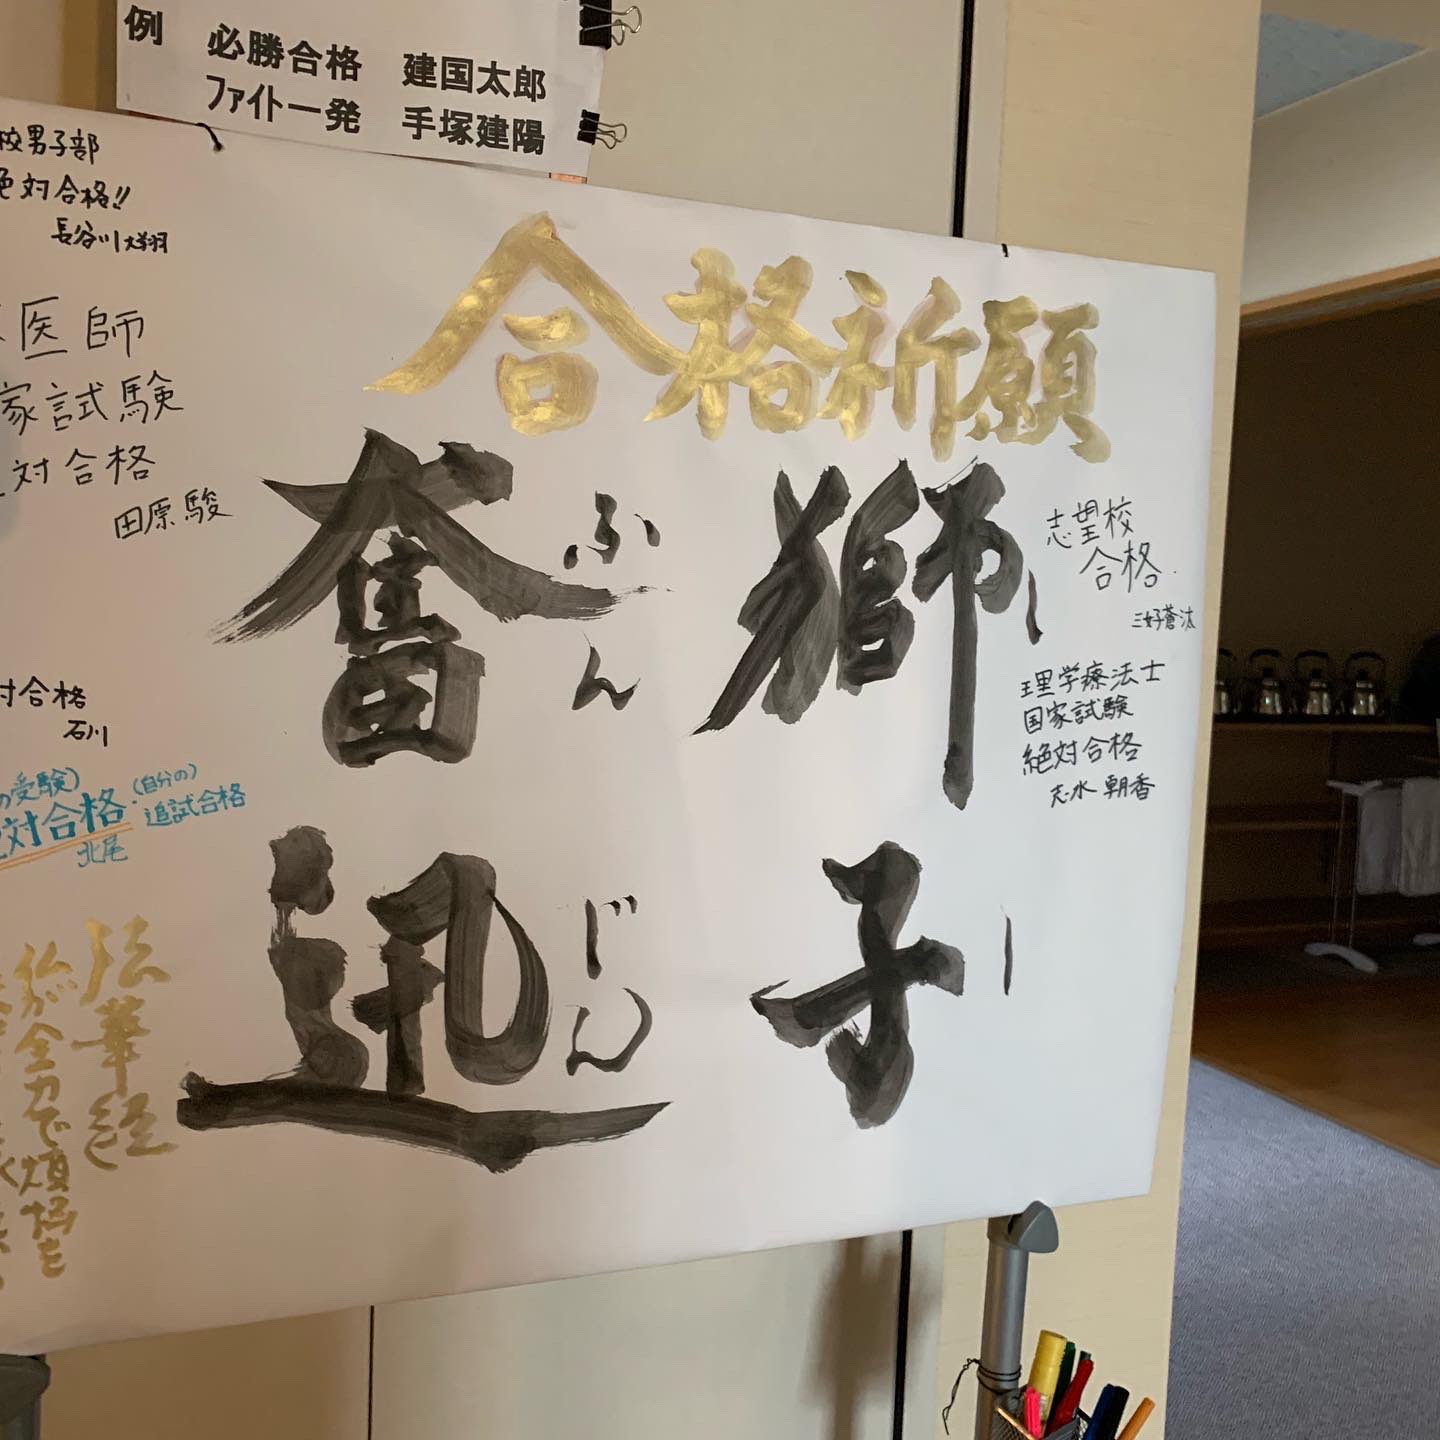 例 必勝合格 建国太郎
ファイト一発 手塚建陽
合格祈願
獅子
し し
奮迅
ふん じん
志望校
合格
三好蒼汰
理学療法士
国家試験
絶対合格
志水 朝香
校男子部
絶対合格!!
長谷川大翔
医師
家試験
対合格
田原駿
対合格
石川
の受験)
対合格
北尾
(自分の)
追試合格
法華経
仏が全力で煩悩を